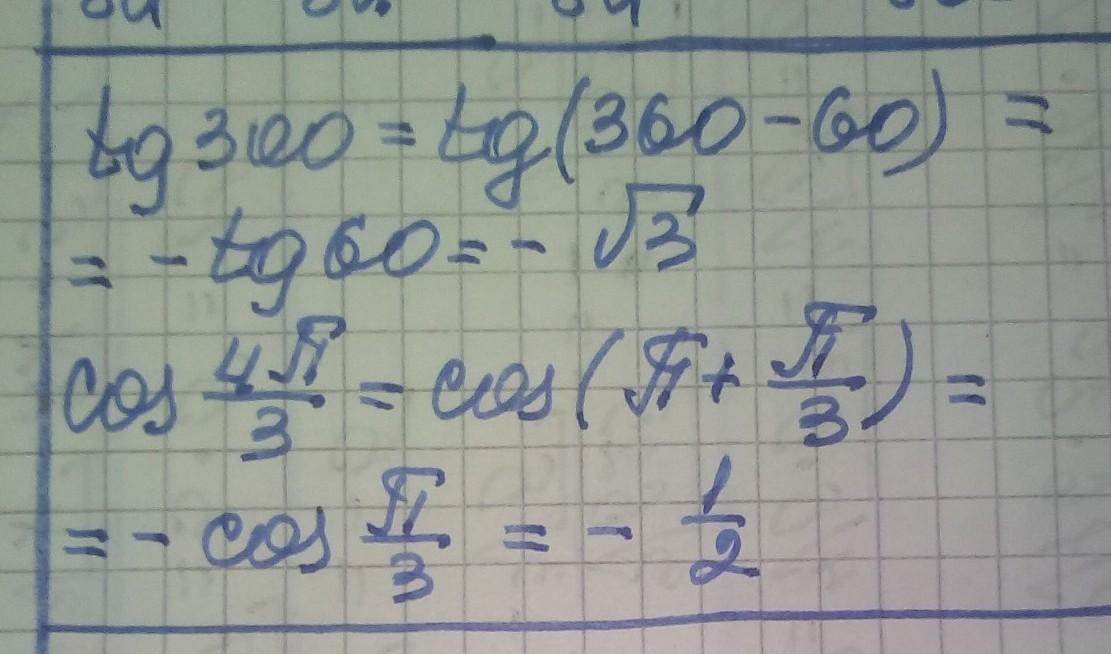 tg 300 = tg(360 - 60) =
= - tg 60 = - √3
cos 4π/3 = cos(π + π/3) =
= - cos π/3 = - 1/2